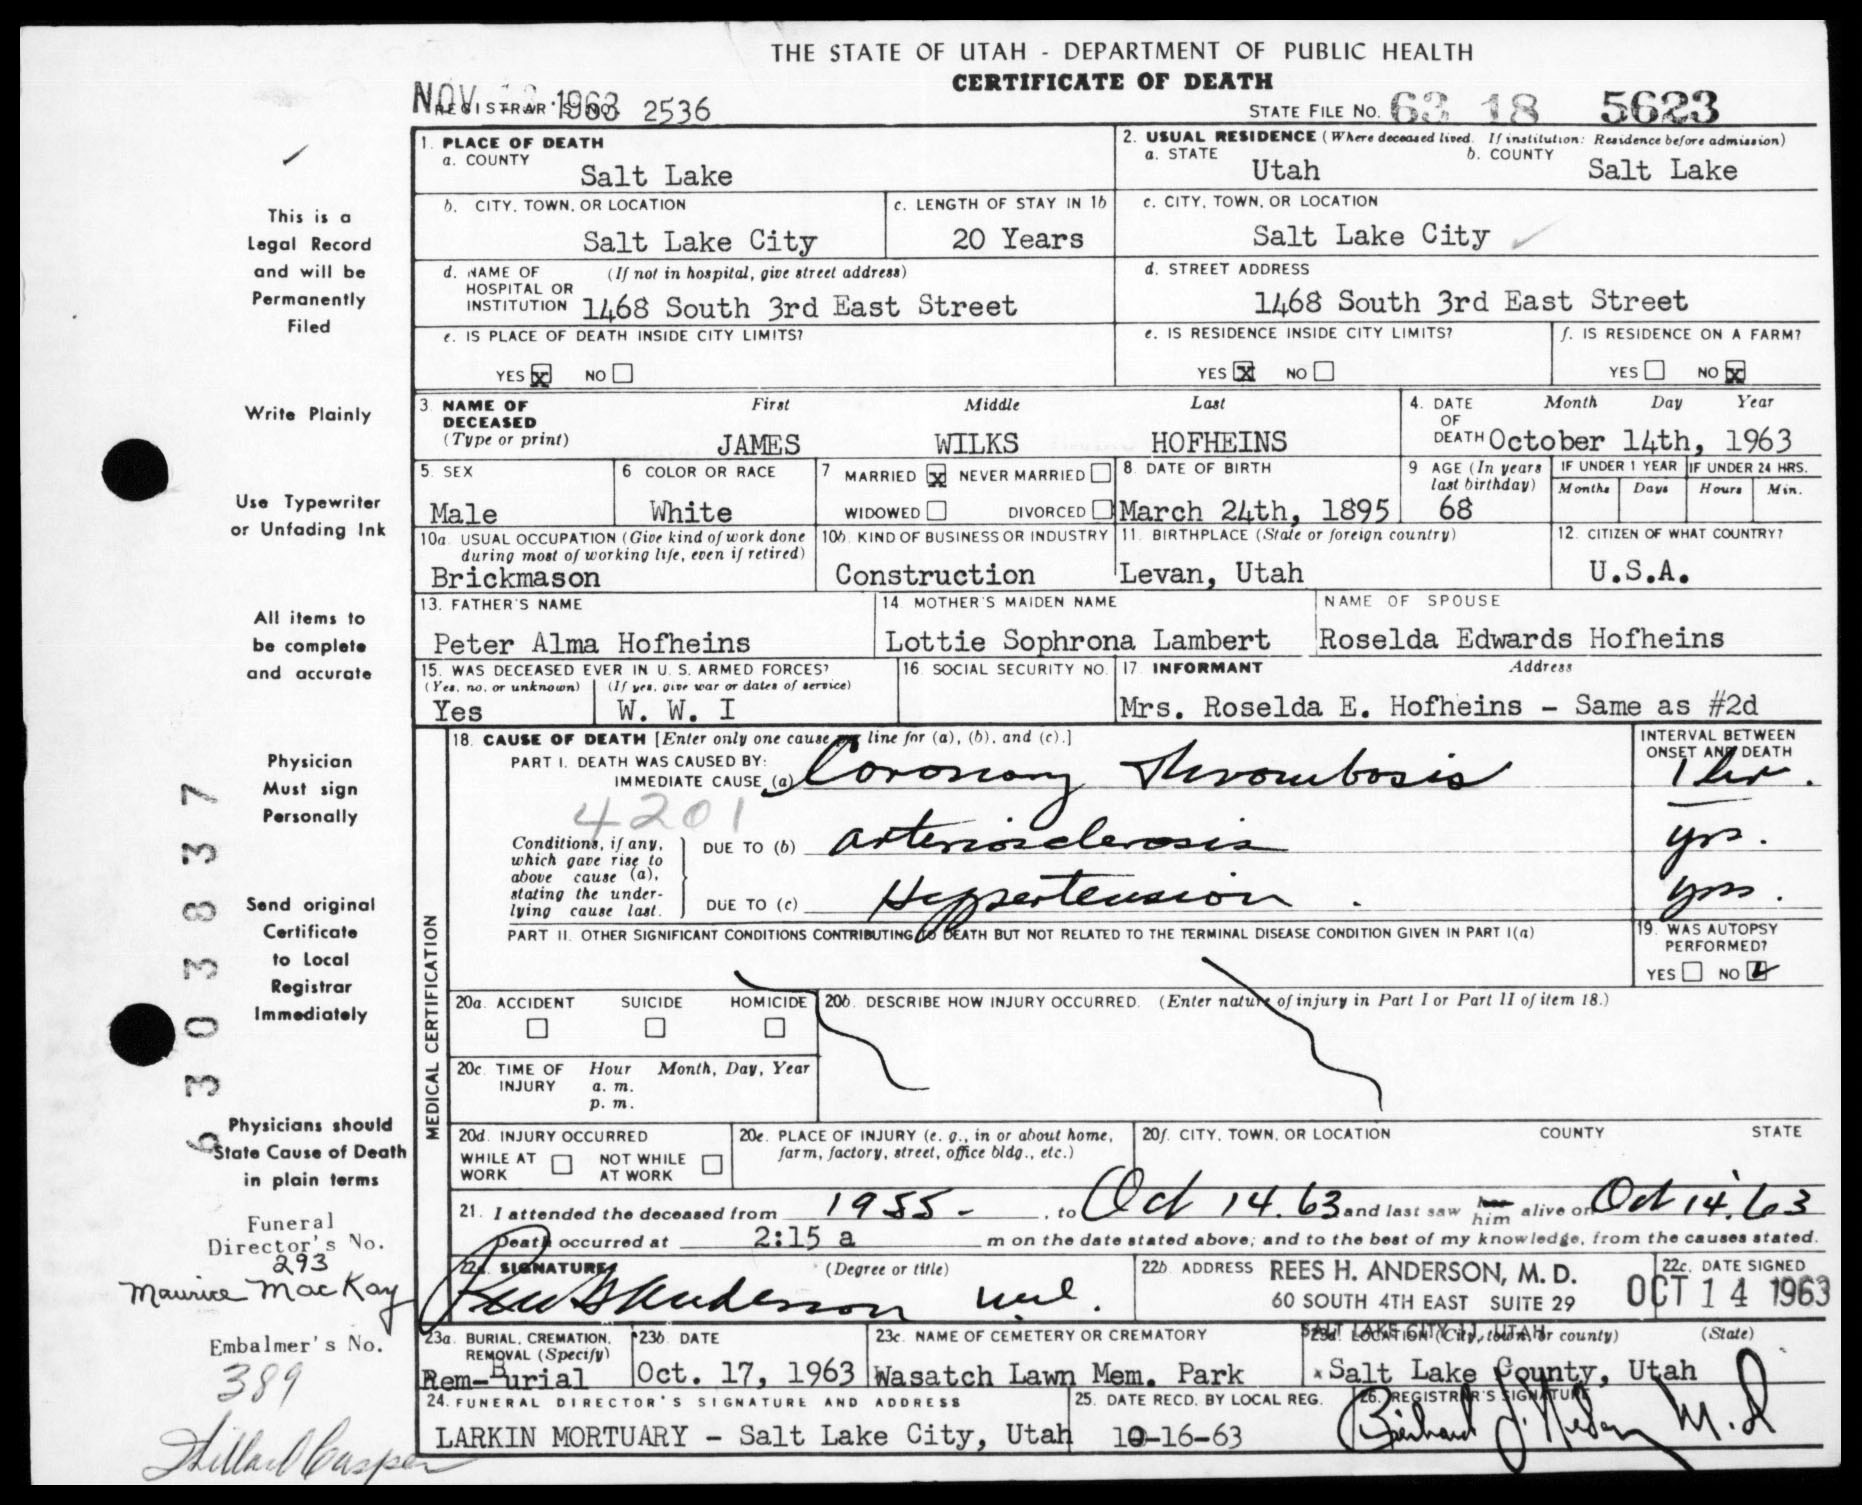 THE STATE OF UTAH - DEPARTMENT OF PUBLIC HEALTH
CERTIFICATE OF DEATH
NOV 1963
REGISTRAR'S NO. 2536
STATE FILE NO. 63 18 5623
1. PLACE OF DEATH
a. COUNTY
Salt Lake
2. USUAL RESIDENCE (Where deceased lived. If institution: Residence before admission)
a. STATE Utah b. COUNTY Salt Lake
b. CITY, TOWN, OR LOCATION
Salt Lake City
c. LENGTH OF STAY IN 1b
20 Years
c. CITY, TOWN, OR LOCATION
Salt Lake City
d. NAME OF HOSPITAL OR INSTITUTION (If not in hospital, give street address)
1468 South 3rd East Street
d. STREET ADDRESS
1468 South 3rd East Street
e. IS PLACE OF DEATH INSIDE CITY LIMITS?
YES X NO
e. IS RESIDENCE INSIDE CITY LIMITS?
YES X NO
f. IS RESIDENCE ON A FARM?
YES NO X
3. NAME OF DECEASED (Type or print)
First Middle Last
JAMES WILKS HOFHEINS
4. DATE OF DEATH Month Day Year
October 14th, 1963
5. SEX
Male
6 COLOR OR RACE
White
7 MARRIED X NEVER MARRIED
WIDOWED DIVORCED
8. DATE OF BIRTH
March 24th, 1895
9 AGE (In years last birthday)
68
IF UNDER 1 YEAR
Months Days
IF UNDER 24 HRS.
Hours Min.
10a. USUAL OCCUPATION (Give kind of work done during most of working life, even if retired)
Brickmason
10b. KIND OF BUSINESS OR INDUSTRY
Construction
11. BIRTHPLACE (State or foreign country)
Levan, Utah
12. CITIZEN OF WHAT COUNTRY?
U.S.A.
13. FATHER'S NAME
Peter Alma Hofheins
14 MOTHER'S MAIDEN NAME
Lottie Sophrona Lambert
NAME OF SPOUSE
Roselda Edwards Hofheins
15. WAS DECEASED EVER IN U. S. ARMED FORCES?
(Yes, no, or unknown) (If yes, give war or dates of service)
Yes W. W. I
16. SOCIAL SECURITY NO.
17 INFORMANT Address
Mrs. Roselda E. Hofheins - Same as #2d
MEDICAL CERTIFICATION
18. CAUSE OF DEATH [Enter only one cause per line for (a), (b), and (c).]
INTERVAL BETWEEN ONSET AND DEATH
PART I. DEATH WAS CAUSED BY:
IMMEDIATE CAUSE (a) Coronary Thrombosis 1 hr.
4201
Conditions, if any, which gave rise to above cause (a), stating the underlying cause last.
DUE TO (b) arteriosclerosis yrs.
DUE TO (c) Hypertension. yrs.
PART II. OTHER SIGNIFICANT CONDITIONS CONTRIBUTING TO DEATH BUT NOT RELATED TO THE TERMINAL DISEASE CONDITION GIVEN IN PART I(a)
19. WAS AUTOPSY PERFORMED?
YES NO
20a. ACCIDENT SUICIDE HOMICIDE
20b. DESCRIBE HOW INJURY OCCURRED. (Enter nature of injury in Part I or Part II of item 18.)
20c. TIME OF INJURY Hour Month, Day, Year
a. m.
p. m.
20d. INJURY OCCURRED
WHILE AT WORK NOT WHILE AT WORK
20e. PLACE OF INJURY (e. g., in or about home, farm, factory, street, office bldg., etc.)
20f. CITY, TOWN, OR LOCATION COUNTY STATE
21. I attended the deceased from 1955 - , to Oct 14. 63 and last saw her him alive on Oct 14, 63
Death occurred at 2:15 a m on the date stated above; and to the best of my knowledge, from the causes stated.
22a. SIGNATURE (Degree or title)
Rees H Anderson M.D.
22b. ADDRESS REES H. ANDERSON, M. D.
60 SOUTH 4TH EAST SUITE 29
SALT LAKE CITY 11, UTAH
22c. DATE SIGNED
OCT 14 1963
23a. BURIAL, CREMATION, REMOVAL (Specify)
Rem-Burial
23b. DATE
Oct. 17, 1963
23c. NAME OF CEMETERY OR CREMATORY
Wasatch Lawn Mem. Park
23d. LOCATION (City, town, or county) (State)
Salt Lake County, Utah
24. FUNERAL DIRECTOR'S SIGNATURE AND ADDRESS
LARKIN MORTUARY - Salt Lake City, Utah
25. DATE RECD. BY LOCAL REG.
10-16-63
26. REGISTRAR'S SIGNATURE
M.D
This is a
Legal Record
and will be
Permanently
Filed
Write Plainly
Use Typewriter
or Unfading Ink
All items to
be complete
and accurate
Physician
Must sign
Personally
Send original
Certificate
to Local
Registrar
Immediately
Physicians should
State Cause of Death
in plain terms
6303837
Funeral
Director's No.
293
Maurice MacKay
Embalmer's No.
389
Casper